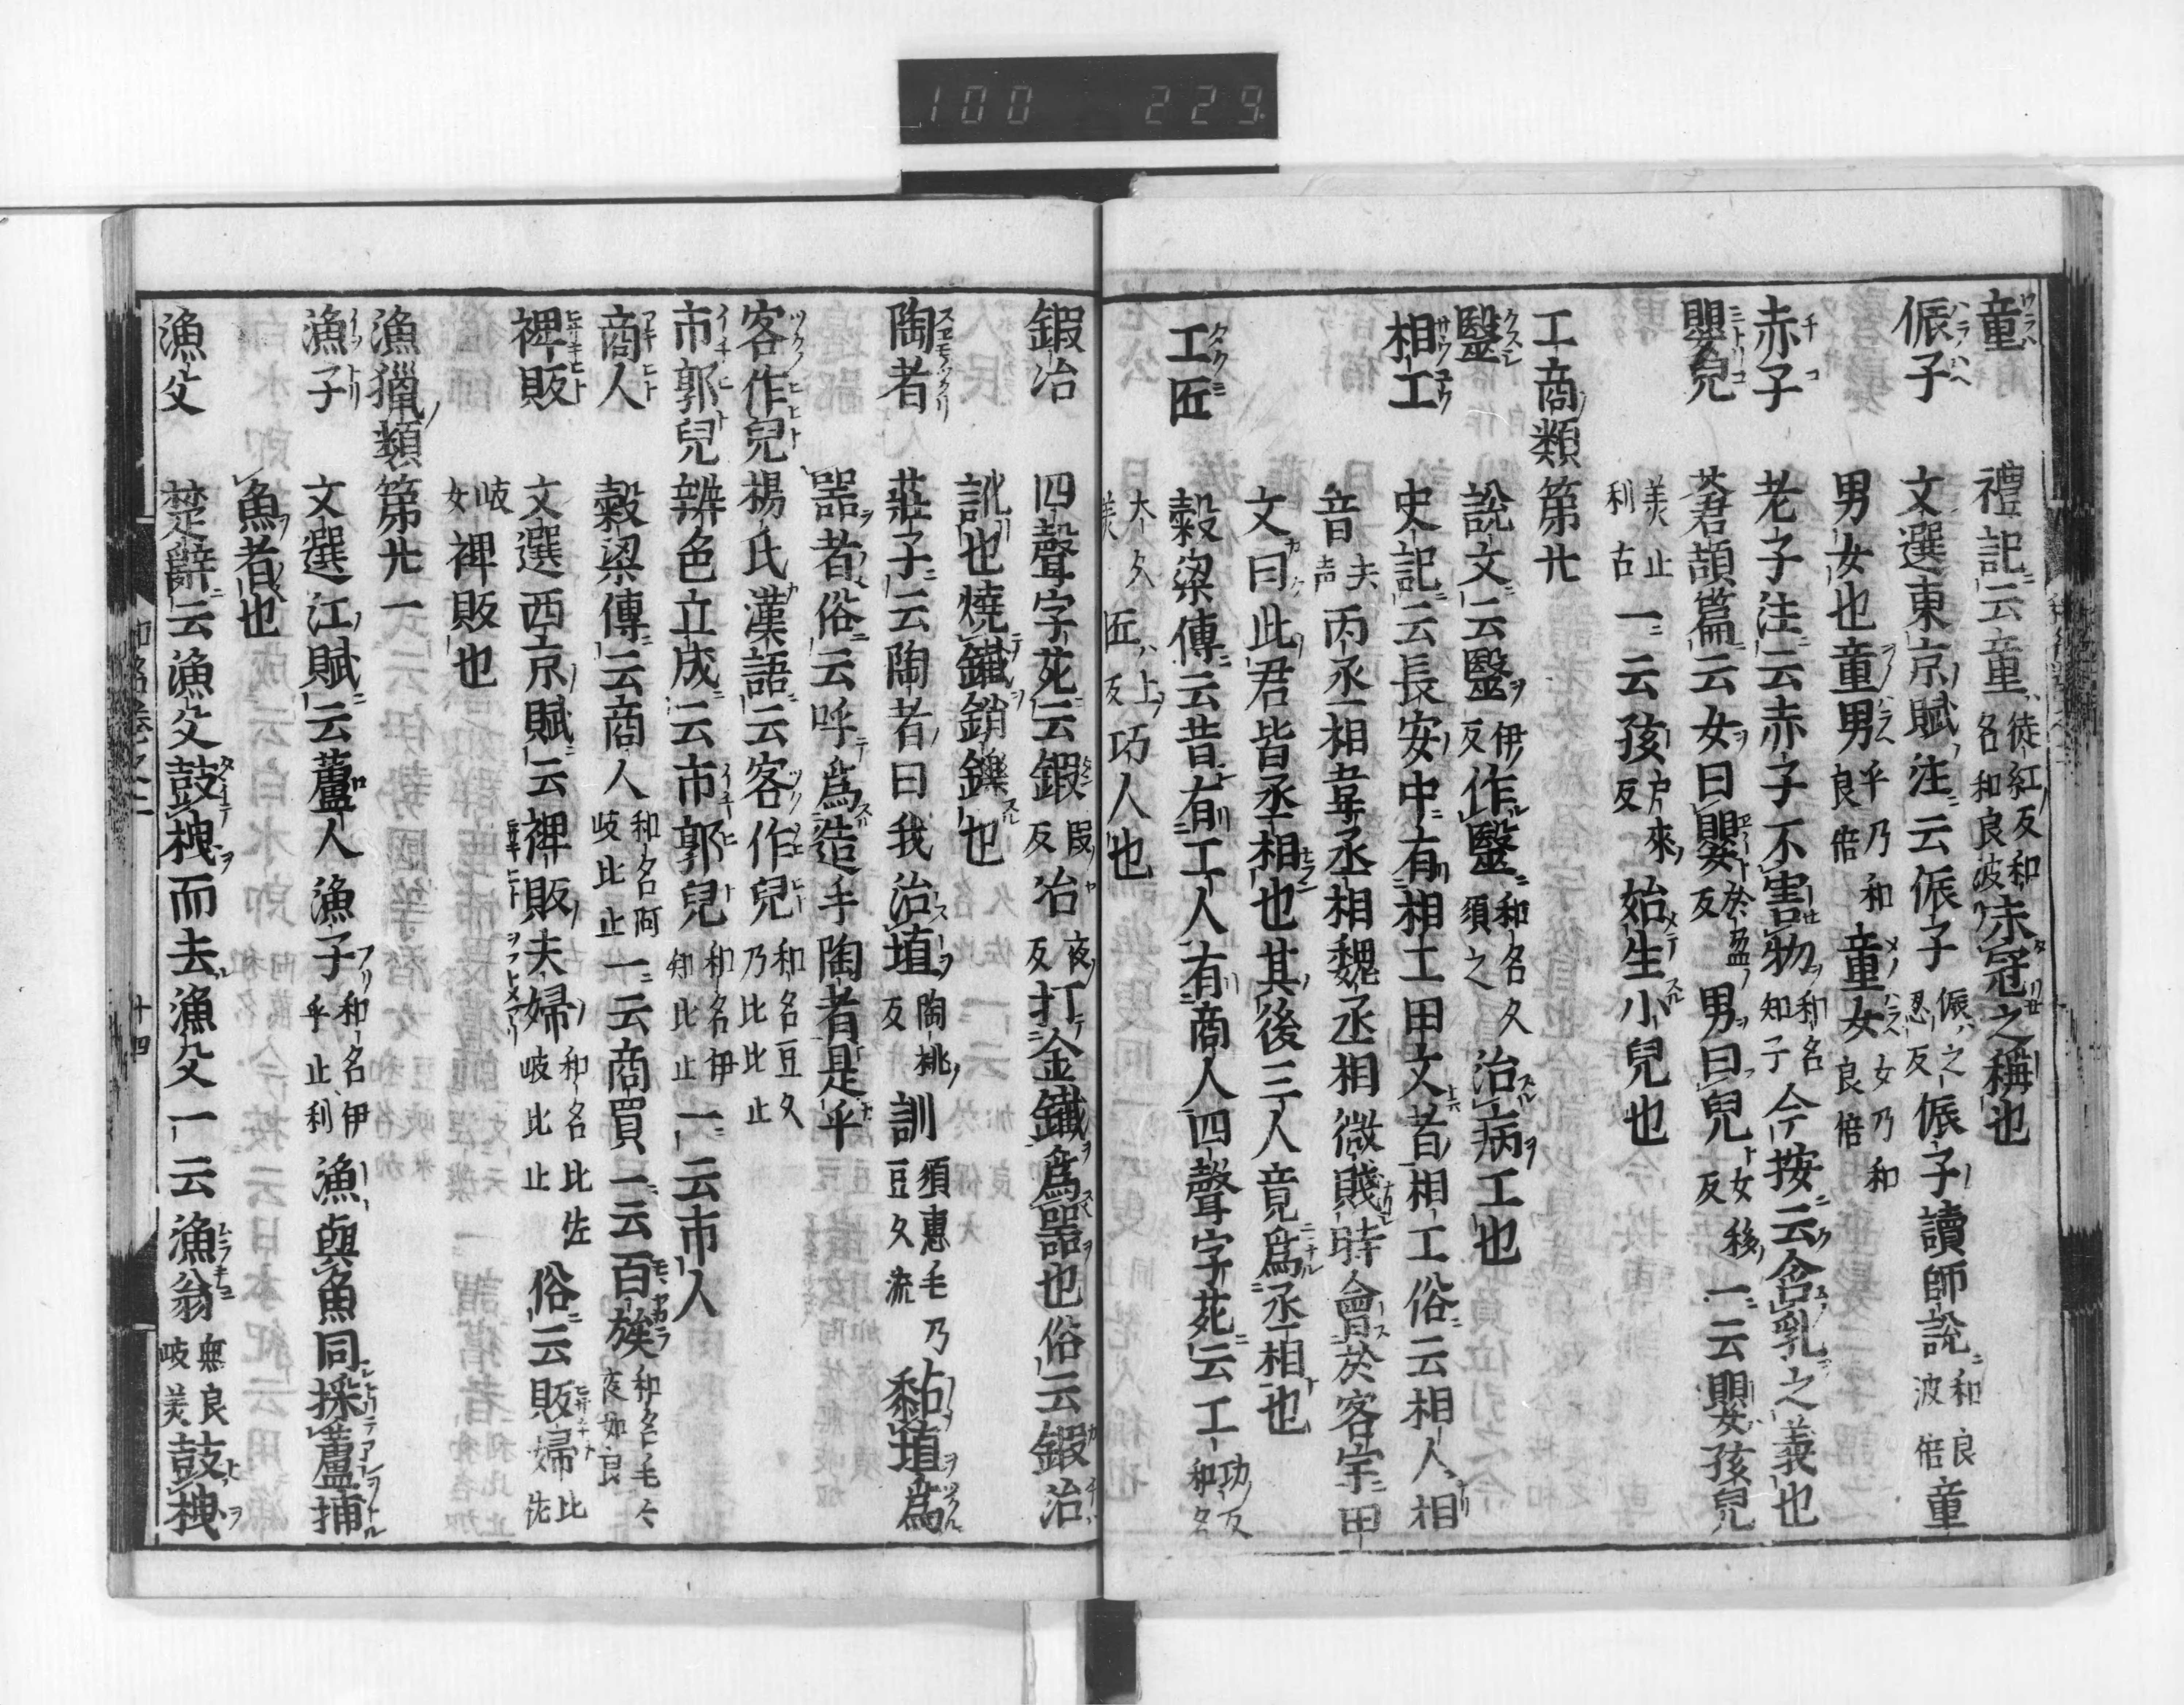 100 229
童 禮記云童徒紅反和名和良波未冠之稱也
侲子 文選東京賦注云侲子侲之忍反侲子讀師說和良波倍童
男女也童男乎乃和良倍童女女乃和良倍
赤子 老子注云赤子不害物和名知子今按云含乳之義也
嬰兒 蒼頡篇云女曰嬰於盈反男曰兒女移反一云嬰孩兒
美止利古一云孩戶來反始生小兒也
工商類第廿
醫 說文云醫伊反作醫和名久須之治病工也
相工 史記云長安中有相工田文者相工俗云相人相
音去声丙丞相韋丞相魏丞相微賤時會於客宇田
文曰此君皆丞相也其後三人竟為丞相也
工匠 穀梁傳云昔有工人有商人四聲字苑云工功反和名
太久美匠上反巧人也
鍜冶 四聲字苑云鍜叚反冶夜反打金鐵為噐也俗云鍜治
訛也燒鐵銷鑠也
陶者 莊子云陶者曰我治埴陶桃反訓須惠毛乃豆久流黏埴為
噐者俗云呼為造手陶者是乎
客作兒 楊氏漢語云客作兒和名豆久乃比比止
市郭兒 辨色立成云市郭兒和名伊知比止一云市人
商人 穀梁傳云商人和名阿岐比止一云商買一云百族和名毛々夜加良
裨販 文選西京賦云裨販夫婦和名比佐岐比止俗云販婦比佐
岐女裨販也
漁獵類第廿一
漁子 文選江賦云蘆人漁子和名伊乎止利漁與魚同採蘆捕
魚者也
漁父 楚辭云漁父鼓枻而去漁父一云漁翁無良岐美鼓枻
和名卷之二 十四